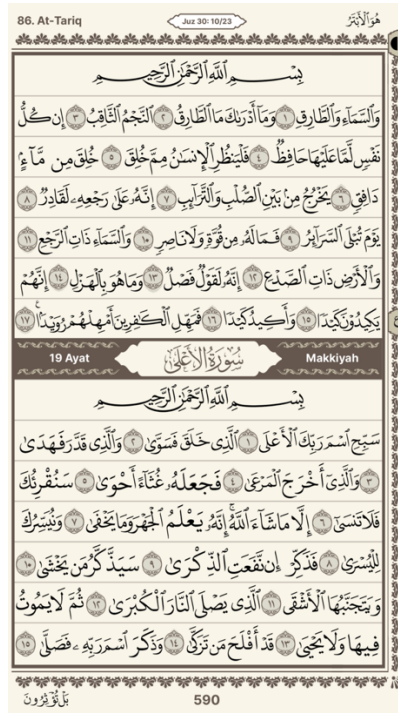 86. At-Tariq Juz 30: 10/23 هُوَ ٱلْأَبْتَرُ
بِسْمِ ٱللَّهِ ٱلرَّحْمَٰنِ ٱلرَّحِيمِ
وَٱلسَّمَآءِ وَٱلطَّارِقِ ١ وَمَآ أَدْرَىٰكَ مَا ٱلطَّارِقُ ٢ ٱلنَّجْمُ ٱلثَّاقِبُ ٣ إِن كُلُّ
نَفْسٍ لَّمَّا عَلَيْهَا حَافِظٌ ٤ فَلْيَنظُرِ ٱلْإِنسَٰنُ مِمَّ خُلِقَ ٥ خُلِقَ مِن مَّآءٍ
دَافِقٍ ٦ يَخْرُجُ مِنۢ بَيْنِ ٱلصُّلْبِ وَٱلتَّرَآئِبِ ٧ إِنَّهُۥ عَلَىٰ رَجْعِهِۦ لَقَادِرٌ ٨
يَوْمَ تُبْلَى ٱلسَّرَآئِرُ ٩ فَمَا لَهُۥ مِن قُوَّةٍ وَلَا نَاصِرٍ ١٠ وَٱلسَّمَآءِ ذَاتِ ٱلرَّجْعِ ١١
وَٱلْأَرْضِ ذَاتِ ٱلصَّدْعِ ١٢ إِنَّهُۥ لَقَوْلٌ فَصْلٌ ١٣ وَمَا هُوَ بِٱلْهَزْلِ ١٤ إِنَّهُمْ
يَكِيدُونَ كَيْدًا ١٥ وَأَكِيدُ كَيْدًا ١٦ فَمَهِّلِ ٱلْكَٰفِرِينَ أَمْهِلْهُمْ رُوَيْدًۢا ١٧
19 Ayat سُورَةُ الأَعْلَىٰ Makkiyah
بِسْمِ ٱللَّهِ ٱلرَّحْمَٰنِ ٱلرَّحِيمِ
سَبِّحِ ٱسْمَ رَبِّكَ ٱلْأَعْلَى ١ ٱلَّذِى خَلَقَ فَسَوَّىٰ ٢ وَٱلَّذِى قَدَّرَ فَهَدَىٰ
٣ وَٱلَّذِىٓ أَخْرَجَ ٱلْمَرْعَىٰ ٤ فَجَعَلَهُۥ غُثَآءً أَحْوَىٰ ٥ سَنُقْرِئُكَ
فَلَا تَنسَىٰٓ ٦ إِلَّا مَا شَآءَ ٱللَّهُ ۚ إِنَّهُۥ يَعْلَمُ ٱلْجَهْرَ وَمَا يَخْفَىٰ ٧ وَنُيَسِّرُكَ
لِلْيُسْرَىٰ ٨ فَذَكِّرْ إِن نَّفَعَتِ ٱلذِّكْرَىٰ ٩ سَيَذَّكَّرُ مَن يَخْشَىٰ ١٠
وَيَتَجَنَّبُهَا ٱلْأَشْقَى ١١ ٱلَّذِى يَصْلَى ٱلنَّارَ ٱلْكُبْرَىٰ ١٢ ثُمَّ لَا يَمُوتُ
فِيهَا وَلَا يَحْيَىٰ ١٣ قَدْ أَفْلَحَ مَن تَزَكَّىٰ ١٤ وَذَكَرَ ٱسْمَ رَبِّهِۦ فَصَلَّىٰ ١٥
بَلْ تُؤْثِرُونَ 590